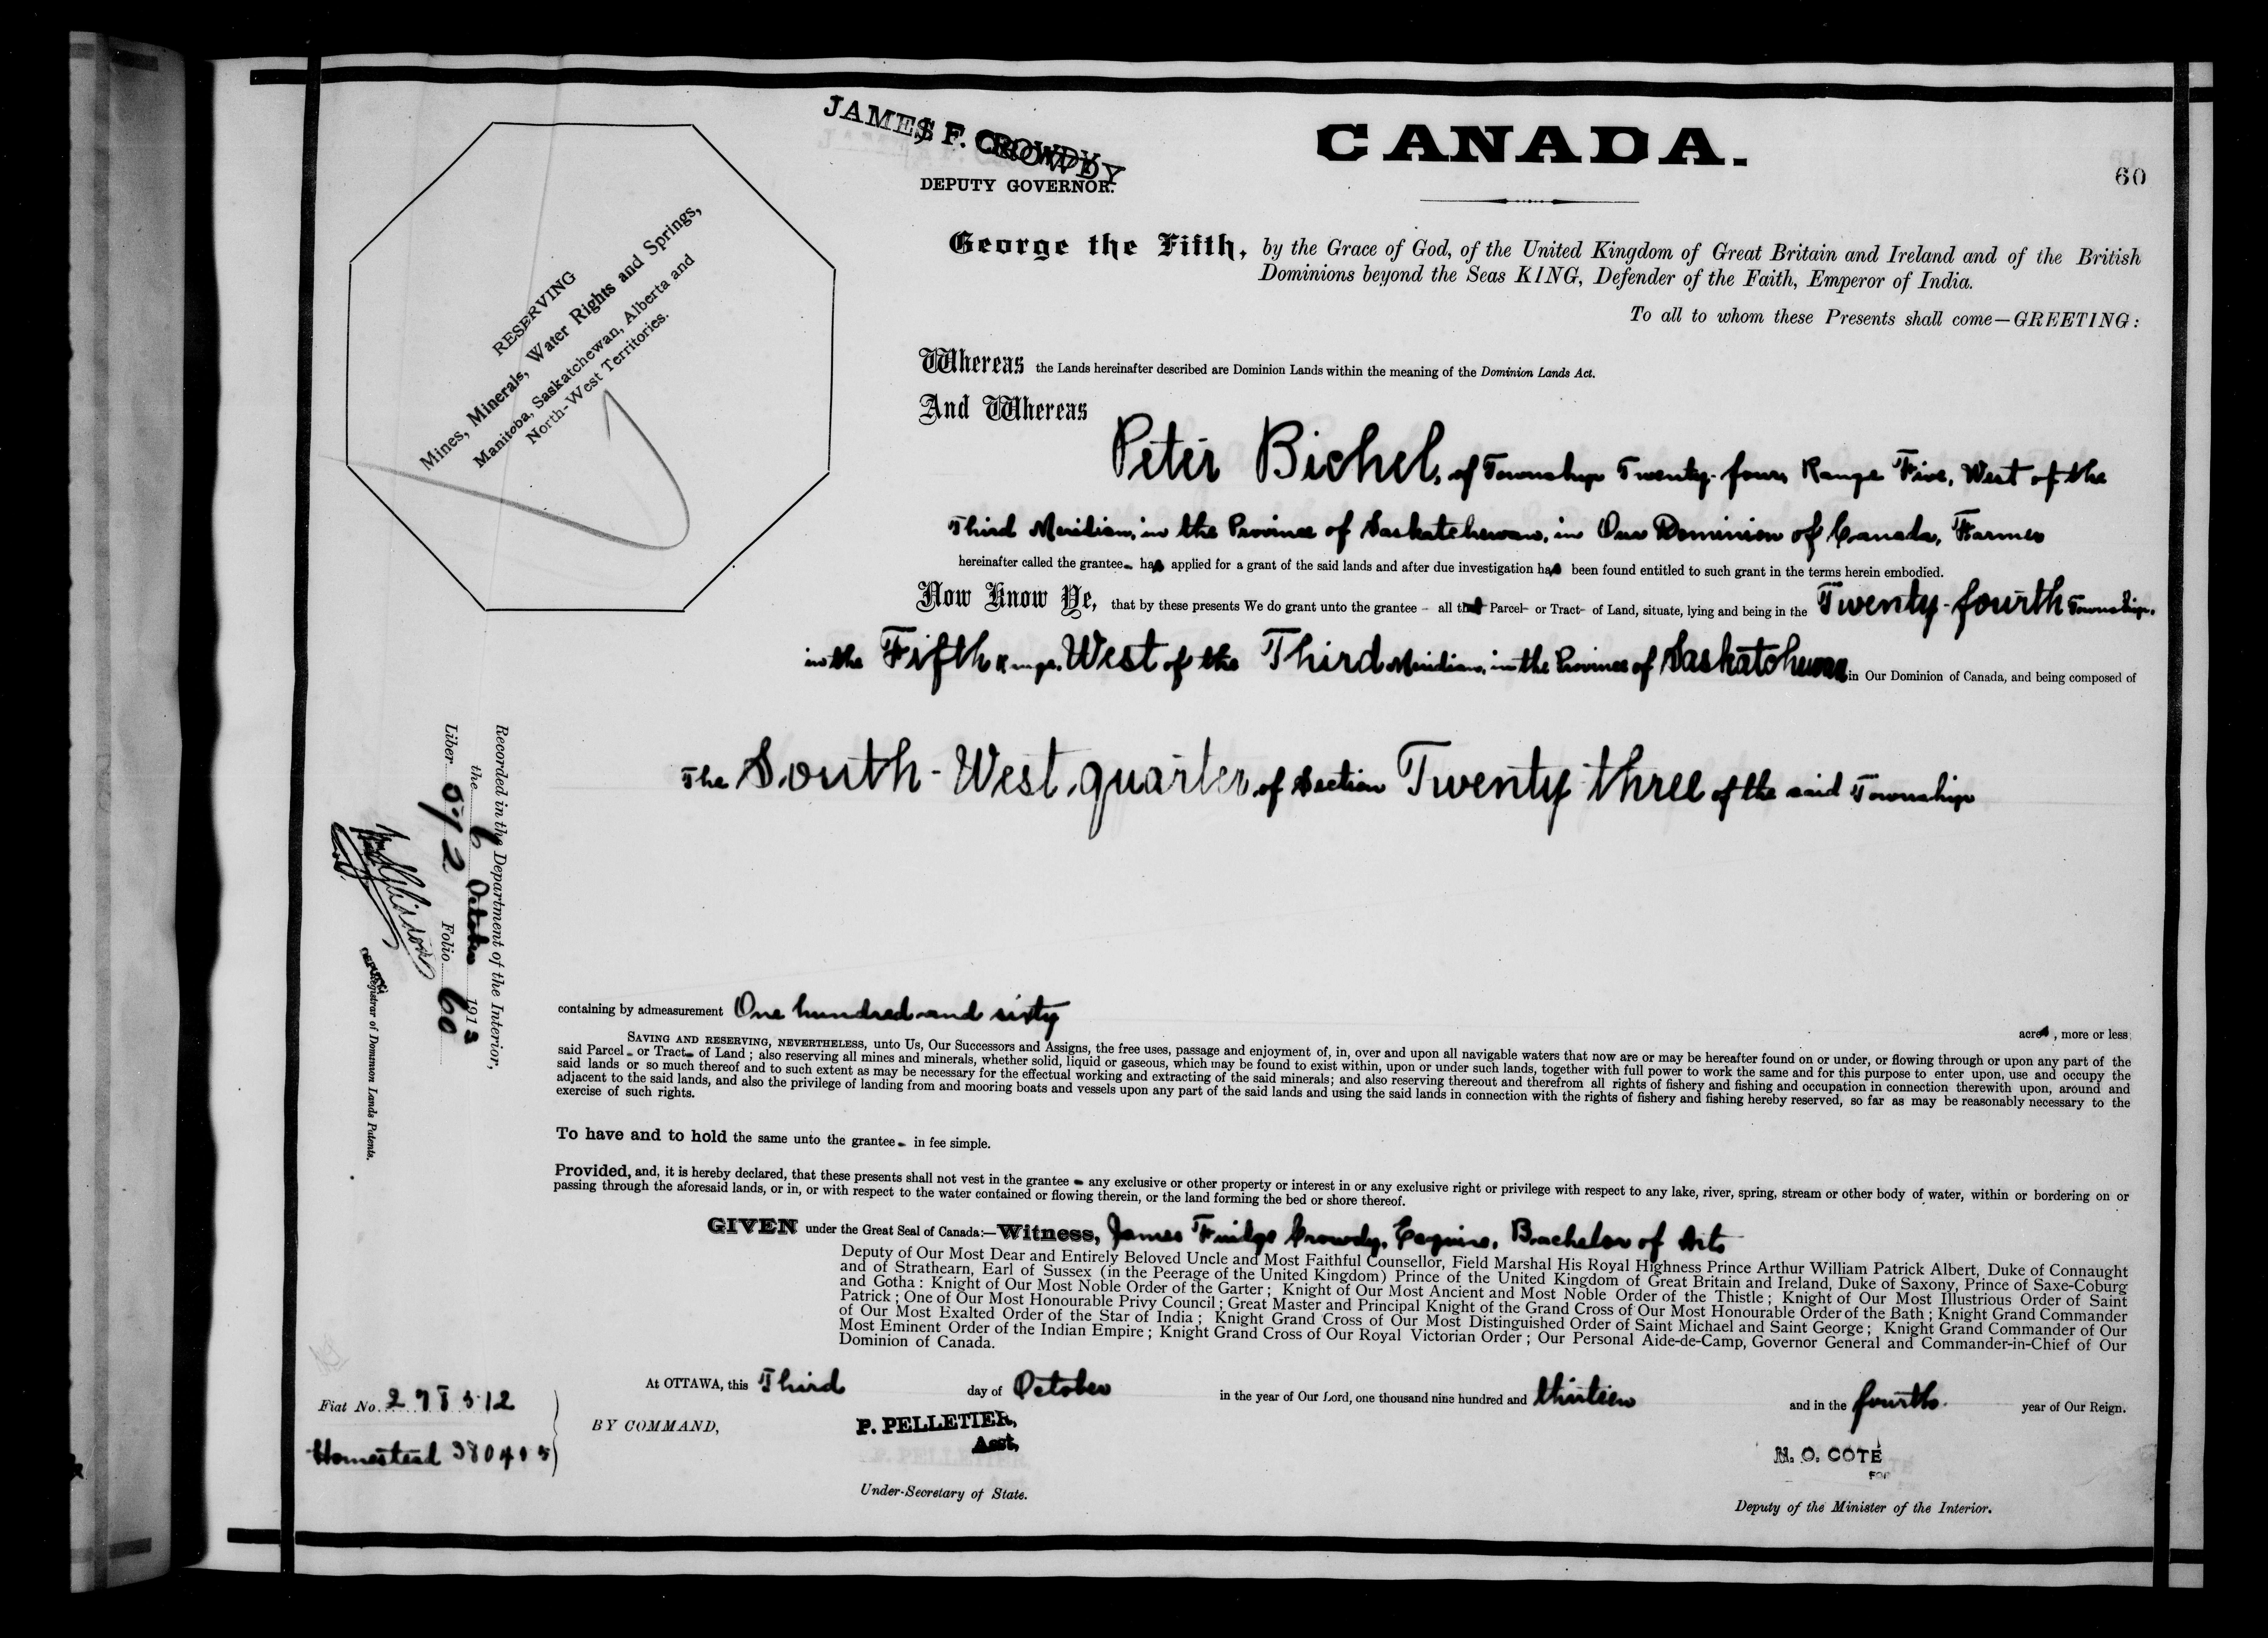 JAMES F. CROWDY
DEPUTY GOVERNOR.
CANADA.
60
RESERVING
Mines, Minerals, Water Rights and Springs,
Manitoba, Saskatchewan, Alberta and
North-West Territories.
George the Fifth, by the Grace of God, of the United Kingdom of Great Britain and Ireland and of the British
Dominions beyond the Seas KING, Defender of the Faith, Emperor of India.
To all to whom these Presents shall come—GREETING:
Whereas the Lands hereinafter described are Dominion Lands within the meaning of the Dominion Lands Act.
And Whereas
Peter Bichel, of Township Twenty-four, Range Five, West of the
Third Meridian, in the Province of Saskatchewan, in Our Dominion of Canada, Farmer
hereinafter called the grantee- has applied for a grant of the said lands and after due investigation has been found entitled to such grant in the terms herein embodied.
Now Know Ye, that by these presents We do grant unto the grantee - all that Parcel- or Tract- of Land, situate, lying and being in the Twenty-fourth Township,
in the Fifth Range, West of the Third Meridian, in the Province of Saskatchewan in Our Dominion of Canada, and being composed of
The South-West quarter of Section Twenty three of the said Township
containing by admeasurement One hundred and sixty
acres, more or less;
SAVING AND RESERVING, NEVERTHELESS, unto Us, Our Successors and Assigns, the free uses, passage and enjoyment of, in, over and upon all navigable waters that now are or may be hereafter found on or under, or flowing through or upon any part of the
said Parcel - or Tract- of Land ; also reserving all mines and minerals, whether solid, liquid or gaseous, which may be found to exist within, upon or under such lands, together with full power to work the same and for this purpose to enter upon, use and occupy the
said lands or so much thereof and to such extent as may be necessary for the effectual working and extracting of the said minerals; and also reserving thereout and therefrom all rights of fishery and fishing and occupation in connection therewith upon, around and
adjacent to the said lands, and also the privilege of landing from and mooring boats and vessels upon any part of the said lands and using the said lands in connection with the rights of fishery and fishing hereby reserved, so far as may be reasonably necessary to the
exercise of such rights.
To have and to hold the same unto the grantee - in fee simple.
Provided, and, it is hereby declared, that these presents shall not vest in the grantee - any exclusive or other property or interest in or any exclusive right or privilege with respect to any lake, river, spring, stream or other body of water, within or bordering on or
passing through the aforesaid lands, or in, or with respect to the water contained or flowing therein, or the land forming the bed or shore thereof.
GIVEN under the Great Seal of Canada:—Witness, James Fuidge Crowdy, Esquire, Bachelor of Arts
Deputy of Our Most Dear and Entirely Beloved Uncle and Most Faithful Counsellor, Field Marshal His Royal Highness Prince Arthur William Patrick Albert, Duke of Connaught
and of Strathearn, Earl of Sussex (in the Peerage of the United Kingdom) Prince of the United Kingdom of Great Britain and Ireland, Duke of Saxony, Prince of Saxe-Coburg
and Gotha : Knight of Our Most Noble Order of the Garter ; Knight of Our Most Ancient and Most Noble Order of the Thistle ; Knight of Our Most Illustrious Order of Saint
Patrick ; One of Our Most Honourable Privy Council ; Great Master and Principal Knight of the Grand Cross of Our Most Honourable Order of the Bath ; Knight Grand Commander
of Our Most Exalted Order of the Star of India ; Knight Grand Cross of Our Most Distinguished Order of Saint Michael and Saint George ; Knight Grand Commander of Our
Most Eminent Order of the Indian Empire ; Knight Grand Cross of Our Royal Victorian Order ; Our Personal Aide-de-Camp, Governor General and Commander-in-Chief of Our
Dominion of Canada.
At OTTAWA, this Third day of October in the year of Our Lord, one thousand nine hundred and thirteen and in the fourth year of Our Reign.
BY COMMAND,
P. PELLETIER,
Asst,
Under-Secretary of State.
N. O. COTÉ
FOR
Deputy of the Minister of the Interior.
Fiat No. 278512
Homestead 380405
Recorded in the Department of the Interior,
the 6 October 1913
Liber 572 Folio 60
Registrar of Dominion Lands Patents.